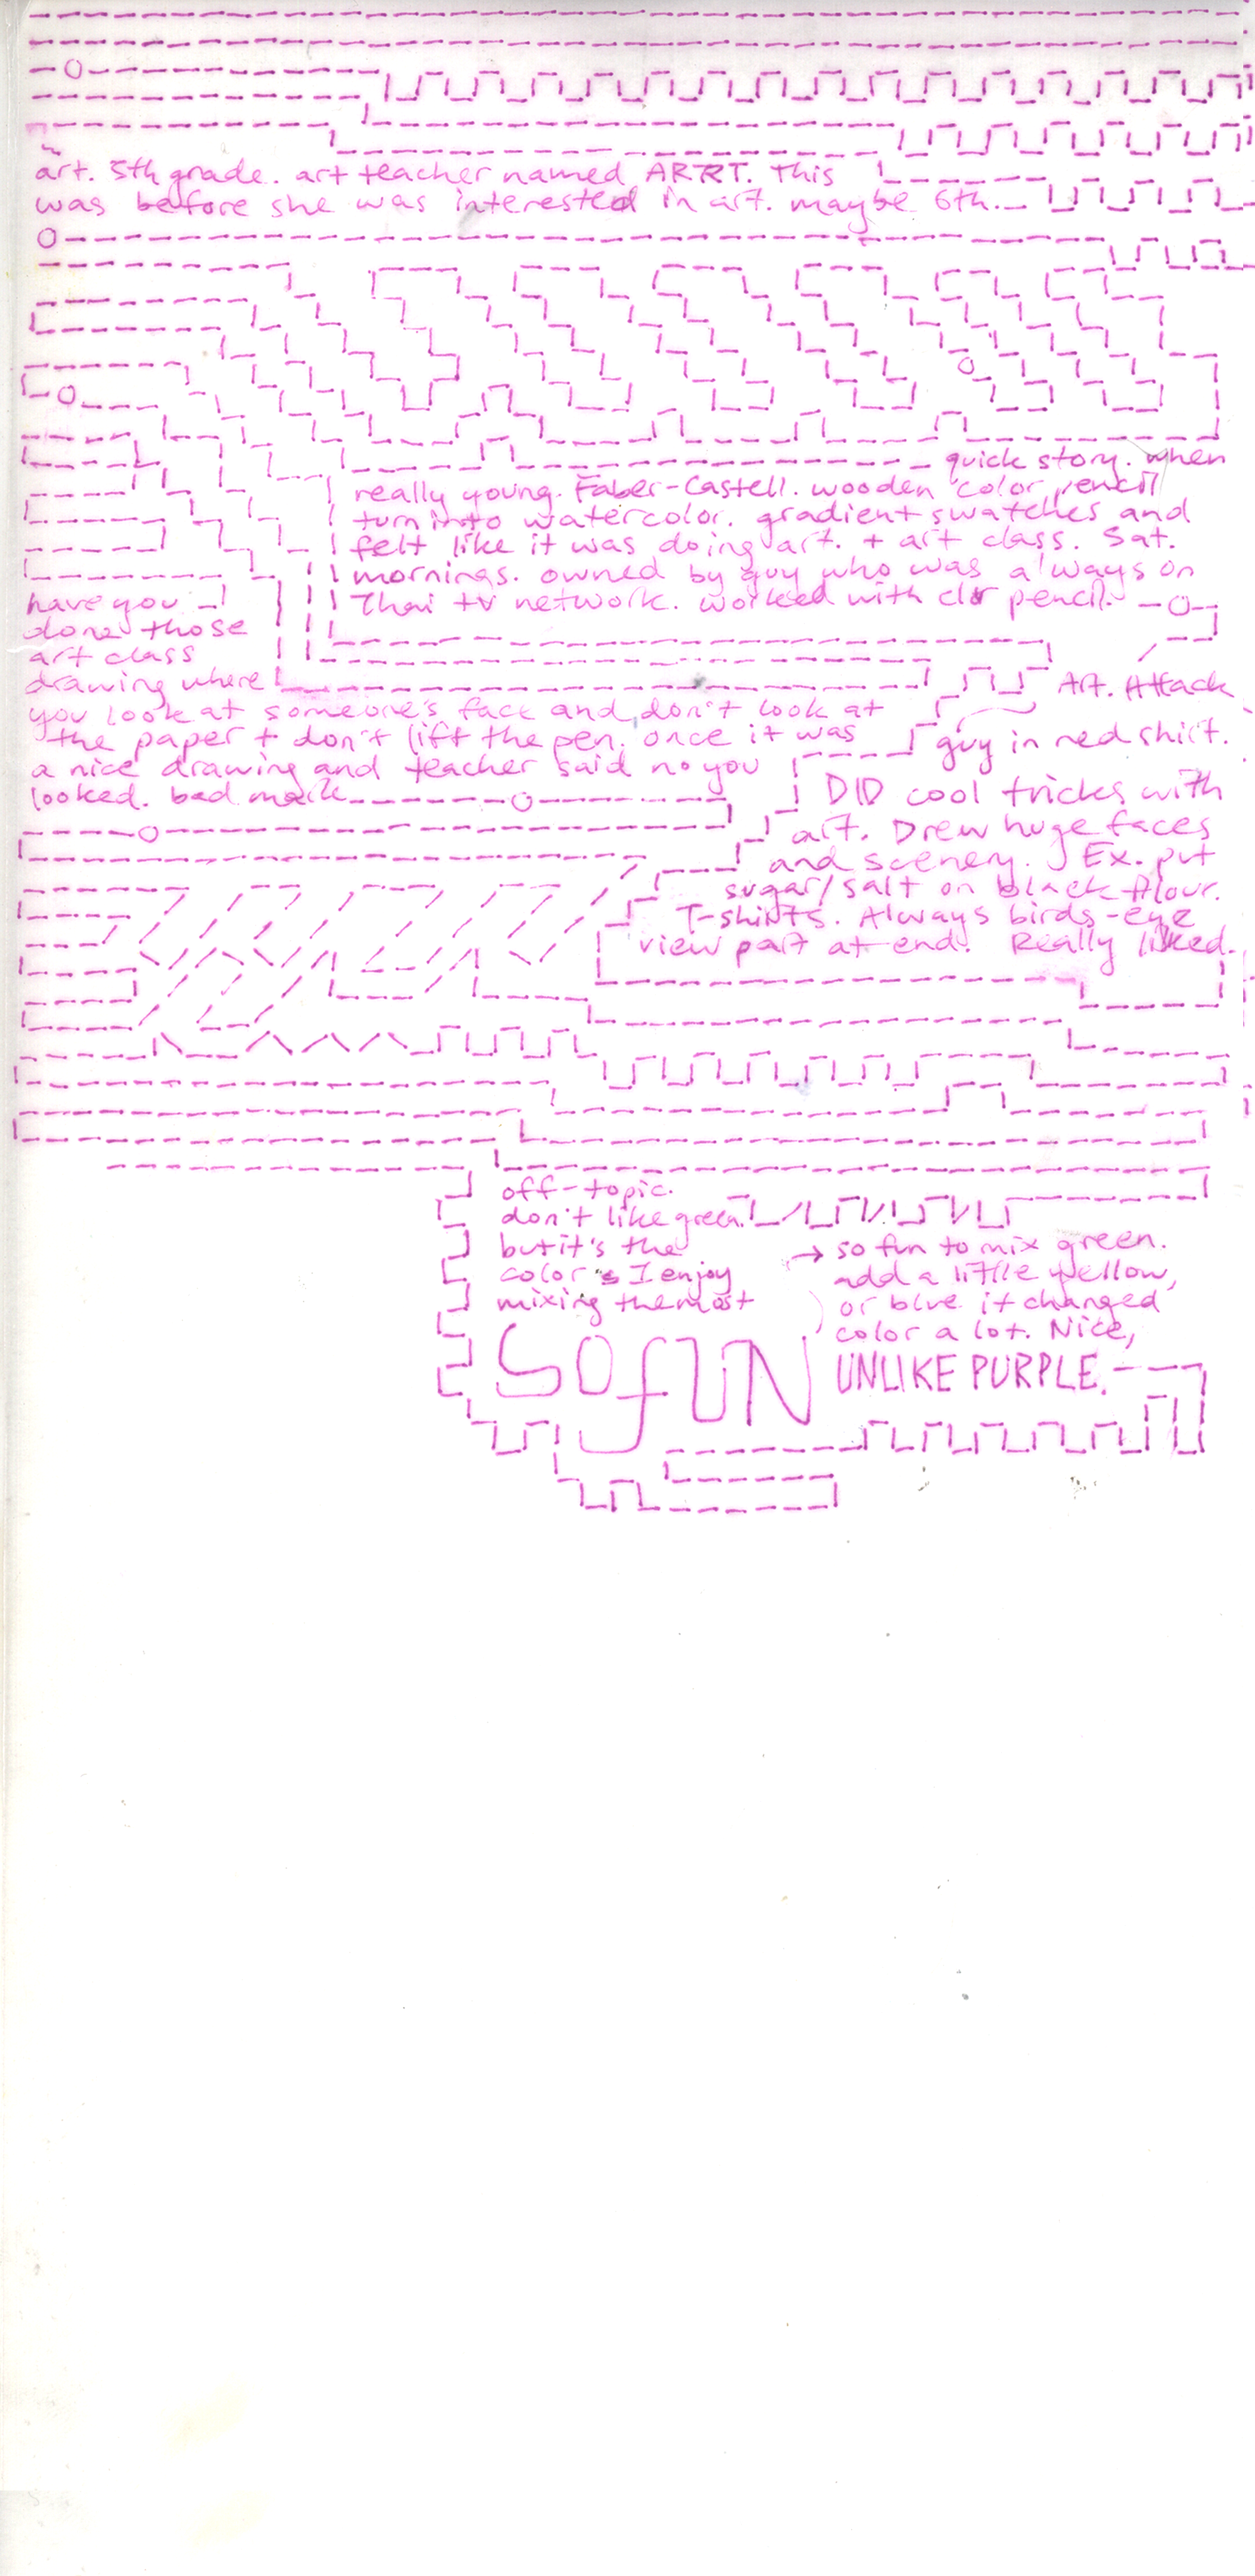 art. 5th grade. art teacher named ARRT. This
was before she was interested in art. maybe 6th.
quick story. when
really young. Faber-Castell. wooden color pencil
turn into watercolor. gradient swatches and
felt like it was doing art. + art class. Sat.
mornings. owned by guy who was always on
Thai tv network. worked with clr pencil.
have you
done those
art class
drawing where
you look at someone's face and don't look at
the paper + don't lift the pen. once it was
a nice drawing and teacher said no you
looked. bad mark
Art. Attack
guy in red shirt.
DID cool tricks with
art. Drew huge faces
and scenery. Ex. put
sugar/salt on black flour.
T-shirts. Always birds-eye
view part at end. Really liked.
off-topic.
don't like green
but it's the
color I enjoy
mixing the most
→ so fun to mix green.
add a little yellow,
or blue it changed
color a lot. Nice,
SO fUN
UNLIKE PURPLE.